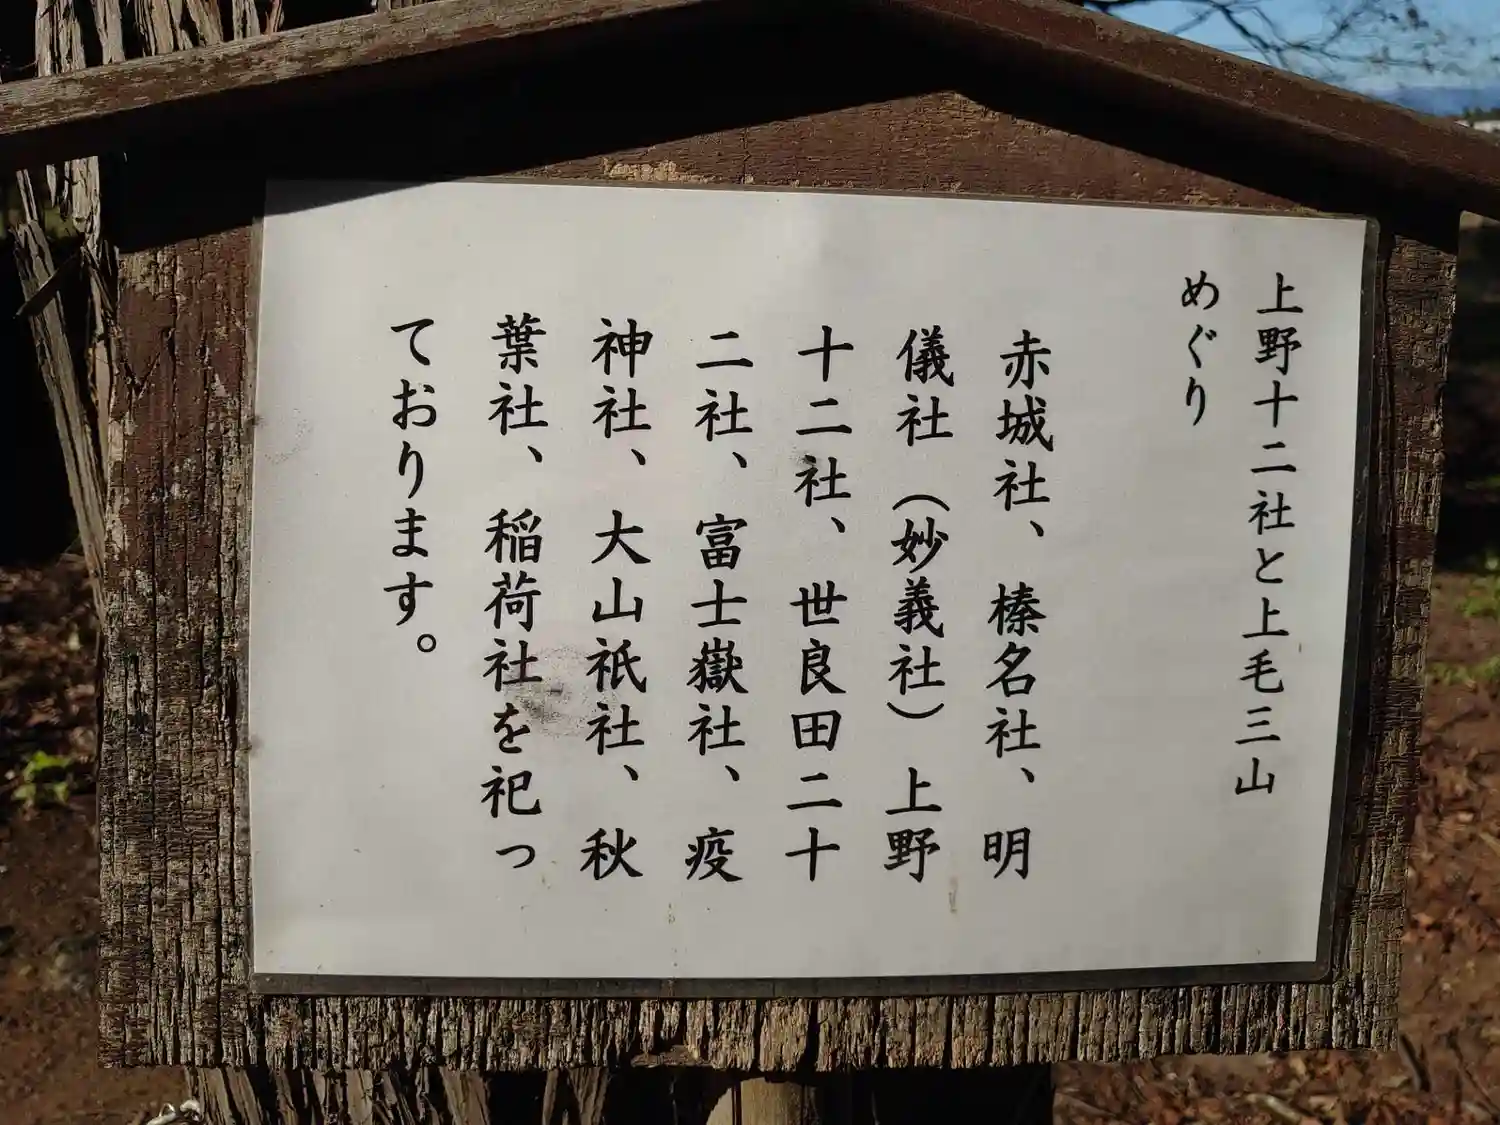 上野十二社と上毛三山
めぐり
赤城社、榛名社、明
儀社（妙義社）上野
十二社、世良田二十
二社、富士嶽社、疫
神社、大山祇社、秋
葉社、稲荷社を祀っ
ております。